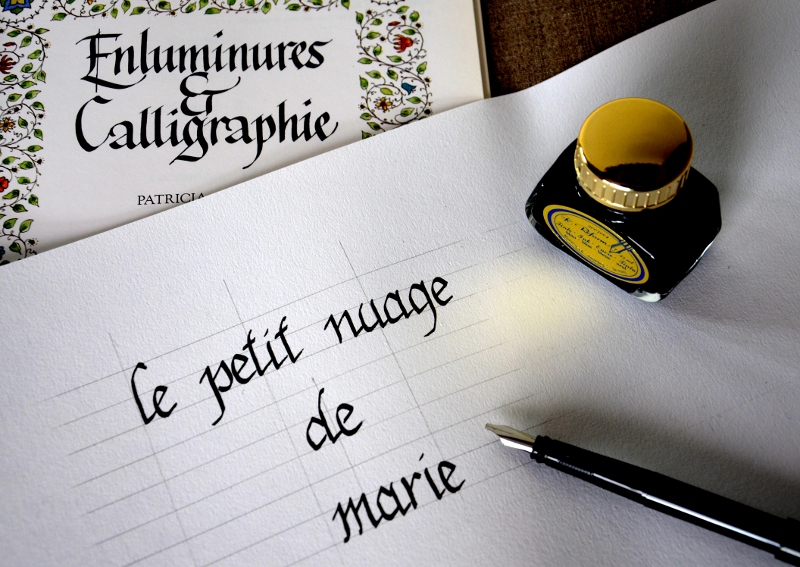 Enluminures
&
Calligraphie
PATRICIA
le petit nuage
de
marie